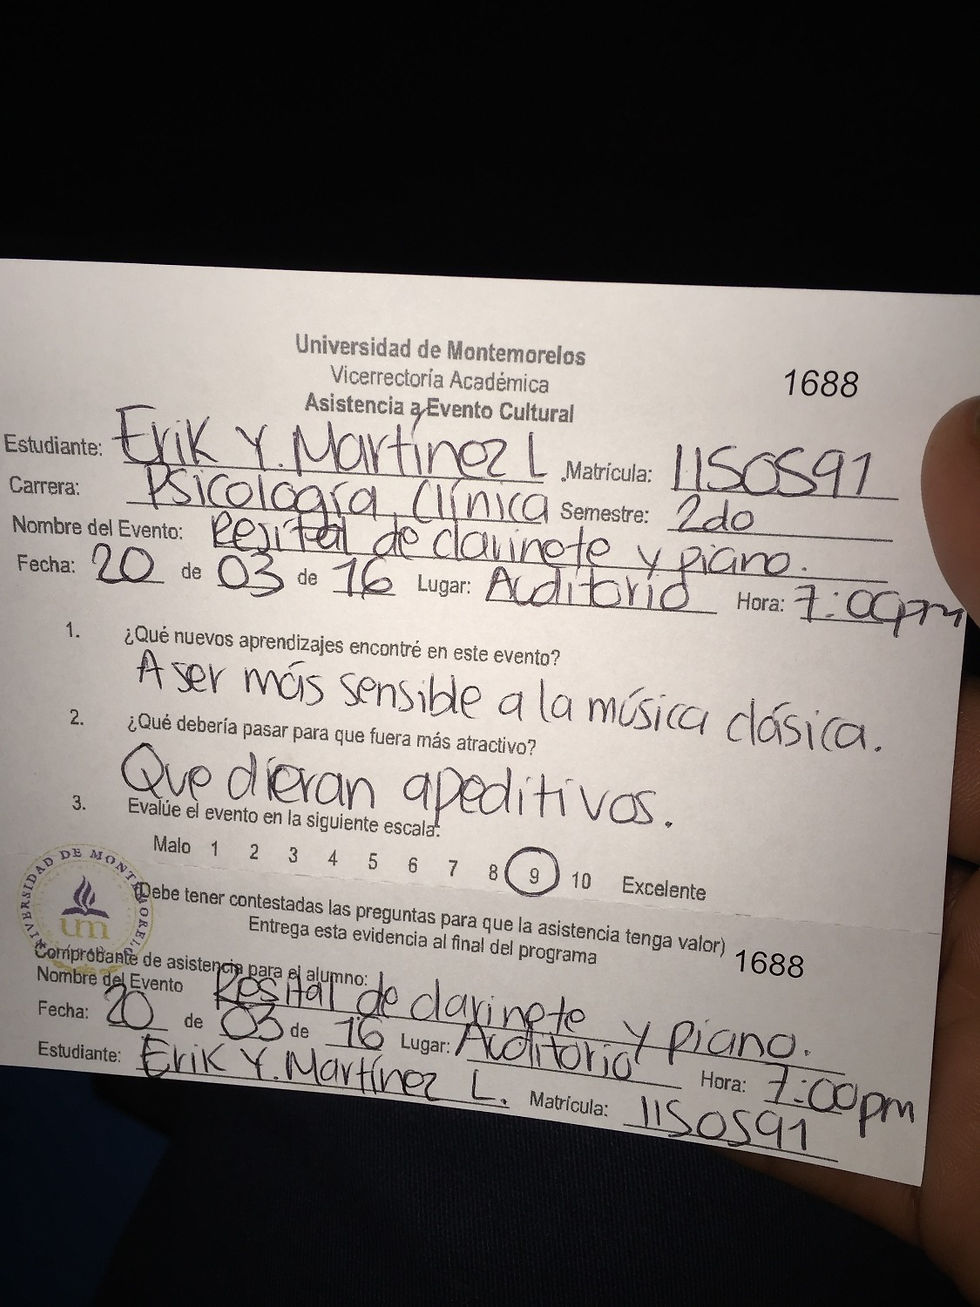 Universidad de Montemorelos
Vicerrectoría Académica
1688
Asistencia a Evento Cultural
Estudiante: Erik Y. Martínez L Matrícula: 1150591
Carrera: Psicología Clínica Semestre: 2do
Nombre del Evento: Resital de clarinete y piano.
Fecha: 20 de 03 de 16 Lugar: Auditorio Hora: 7:00pm
1. ¿Qué nuevos aprendizajes encontré en este evento?
A ser más sensible a la música clásica.
2. ¿Qué debería pasar para que fuera más atractivo?
Que dieran apeditivos.
3. Evalúe el evento en la siguiente escala:
Malo 1 2 3 4 5 6 7 8 9 10 Excelente
(Debe tener contestadas las preguntas para que la asistencia tenga valor)
Entrega esta evidencia al final del programa
1688
UNIVERSIDAD DE MONTEMORELOS
um
Comprobante de asistencia para el alumno:
Nombre del Evento Resital de clarinete y piano.
Fecha: 20 de 03 de 16 Lugar: Auditorio Hora: 7:00pm
Estudiante: Erik Y. Martínez L. Matrícula: 1150591